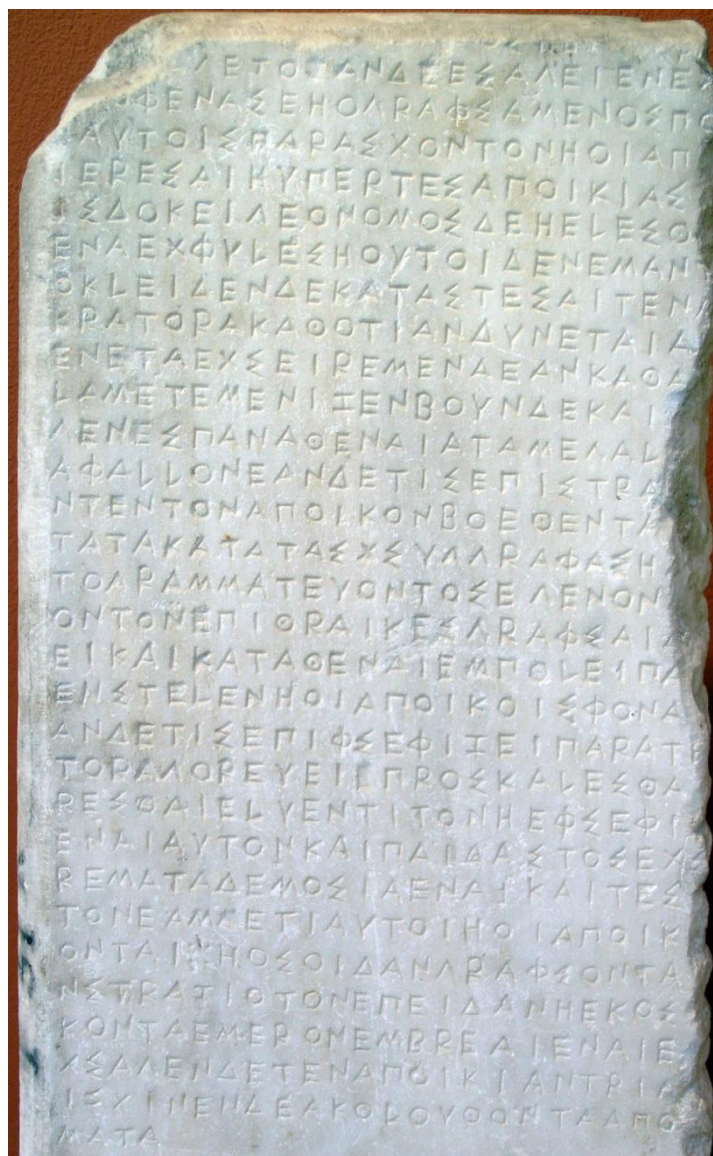 ΓΕΤΟΕΑΝΔΕΕΣΑΓΕΙΕΝΕ
ΟΦΕΝΑΣΕΗΟΓΡΑΦΣΑΜΕΝΟΣΠΟ
ΑΥΤΟΙΣΠΑΡΑΣΧΟΝΤΟΝΗΟΙΑΠΟ
ΙΕΡΕΣΑΙΗΥΠΕΡΤΕΣΑΠΟΙΚΙΑΣ
ΣΔΟΚΕΙΓΕΟΝΟΜΟΣΔΕΗΕΛΕΣΘ
ΕΝΑΕΧΦΥΛΕΣΗΟΥΤΟΙΔΕΝΕΜΑΝΤ
ΟΚΛΕΙΔΕΝΔΕΚΑΤΑΣΤΕΣΑΙΤΕΝΑ
ΚΡΑΤΟΡΑΚΑΘΟΤΙΑΝΔΥΝΕΤΑΙΑ
ΕΝΕΤΑΕΧΣΕΙΡΕΜΕΝΑΕΑΝΚΑΘΑ
ΛΑΜΕΤΕΜΕΝΙΖΕΝΒΟΥΝΔΕΚΑΙ
ΓΕΝΕΣΠΑΝΑΘΕΝΑΙΑΤΑΜΕΓΑΛ
ΑΦΑΛΛΟΝΕΑΝΔΕΤΙΣΕΠΙΣΤΡΑ
ΝΤΕΝΤΟΝΑΠΟΙΚΟΝΒΟΕΘΕΝΤΑ
ΤΑΤΑΚΑΤΑΤΑΣΧΣΥΓΓΡΑΦΑΣΗ
ΤΟΓΡΑΜΜΑΤΕΥΟΝΤΟΣΕΓΕΝΟΝ
ΟΝΤΟΝΕΠΙΘΡΑΙΚΕΣΓΡΑΦΣΑΙ
ΕΙΚΑΙΚΑΤΑΘΕΝΑΙΕΜΠΟΛΕΙΠΑ
ΕΝΣΤΕΛΕΝΗΟΙΑΠΟΙΚΟΙΣΦΟΝΑ
ΑΝΔΕΤΙΣΕΠΙΦΣΕΦΙΖΕΙΠΑΡΑΤΕ
ΤΟΡΑΓΟΡΕΥΕΙΕΠΡΟΣΚΑΛΕΣΘΑ
ΡΕΣΘΑΙΕΛΥΕΝΤΙΤΟΝΗΕΦΣΕΦΙ
ΕΝΑΙΑΥΤΟΝΚΑΙΠΑΙΔΑΣΤΟΣΕΧΣ
ΡΕΜΑΤΑΔΕΜΟΣΙΑΕΝΑΙΚΑΙΤΕΣ
ΤΟΝΕΑΜΜΕΤΙΑΥΤΟΙΗΟΙΑΠΟΙΚ
ΟΝΤΑΙΗΟΣΟΙΔΑΝΓΡΑΦΣΟΝΤΑ
ΝΣΤΡΑΤΙΟΤΟΝΕΠΕΙΔΑΝΗΕΚΟΣ
ΚΟΝΤΑΕΜΕΡΟΝΕΜΒΡΕΑΙΕΝΑΙΕ
ΧΣΑΓΕΝΔΕΤΕΝΑΠΟΙΚΙΑΝΤΡΙΑ
ΙΣΧΙΝΕΝΔΕΑΚΟΛΟΥΘΟΝΤΑΑΠΟ
ΜΑΤΑ